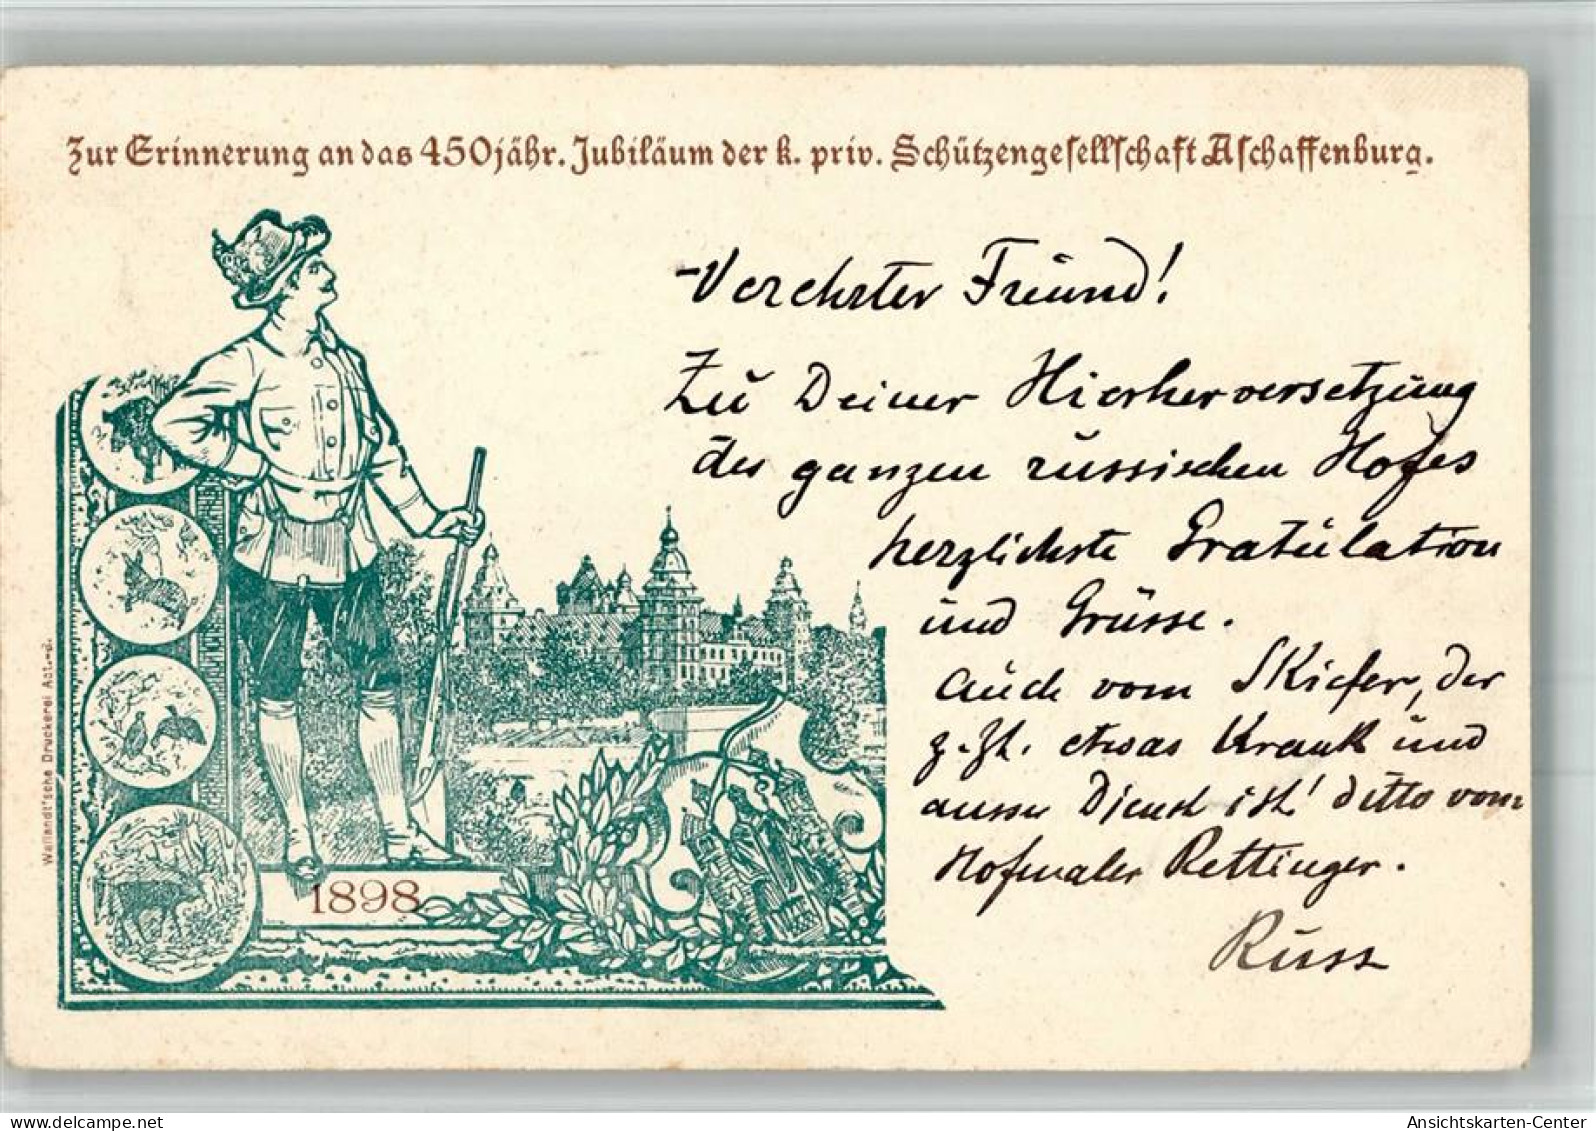 Zur Erinnerung an das 450jähr. Jubiläum der k. priv. Schützengesellschaft Aschaffenburg.
Verehrter Freund!
Zu Deiner Hierherversetzung
des ganzen russischen Hofes
herzlichste Gratulation
und Grüsse.
Auch vom SKiefer, der
z. Zt. etwas Krank und
ausser Dienst ist! ditto vom
Hofmaler Rettinger.
Russ
1898
Wailandt'sche Druckerei Act.-G.
delcampe.net
Ansichtskarten-Center